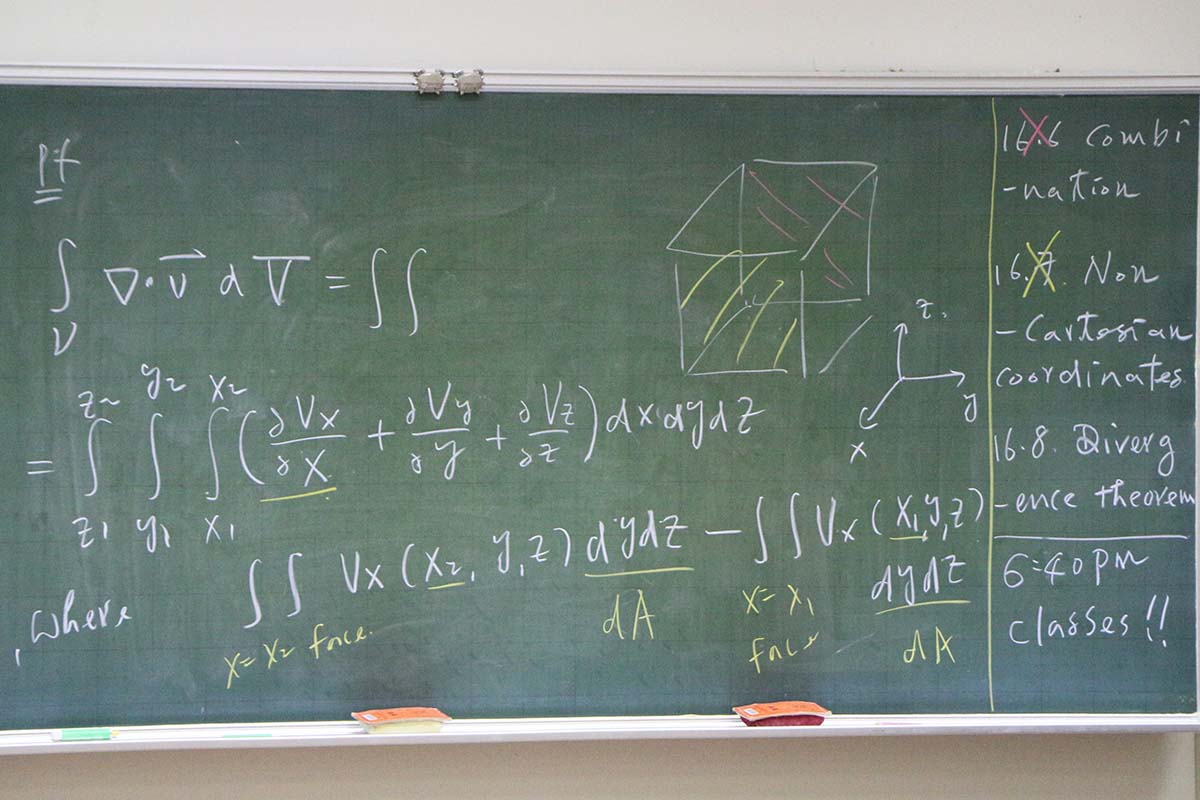 pf
∫ ∇·v⃗ dV̅ = ∫∫
V
= ∫_{z₁}^{z₂} ∫_{y₁}^{y₂} ∫_{x₁}^{x₂} (∂Vx/∂x + ∂Vy/∂y + ∂Vz/∂z) dx dy dz
, where ∫∫ Vx (x₂, y, z) dydz − ∫∫ Vx (x₁, y, z)
dydz
x = x₂ face.
dA
x = x₁
face
dA
z.
y
x
16.6 Combi
-nation
16.7. Non
-Cartesian
coordinates.
16.8. Diverg
-ence theorem
6:40pm
classes!!